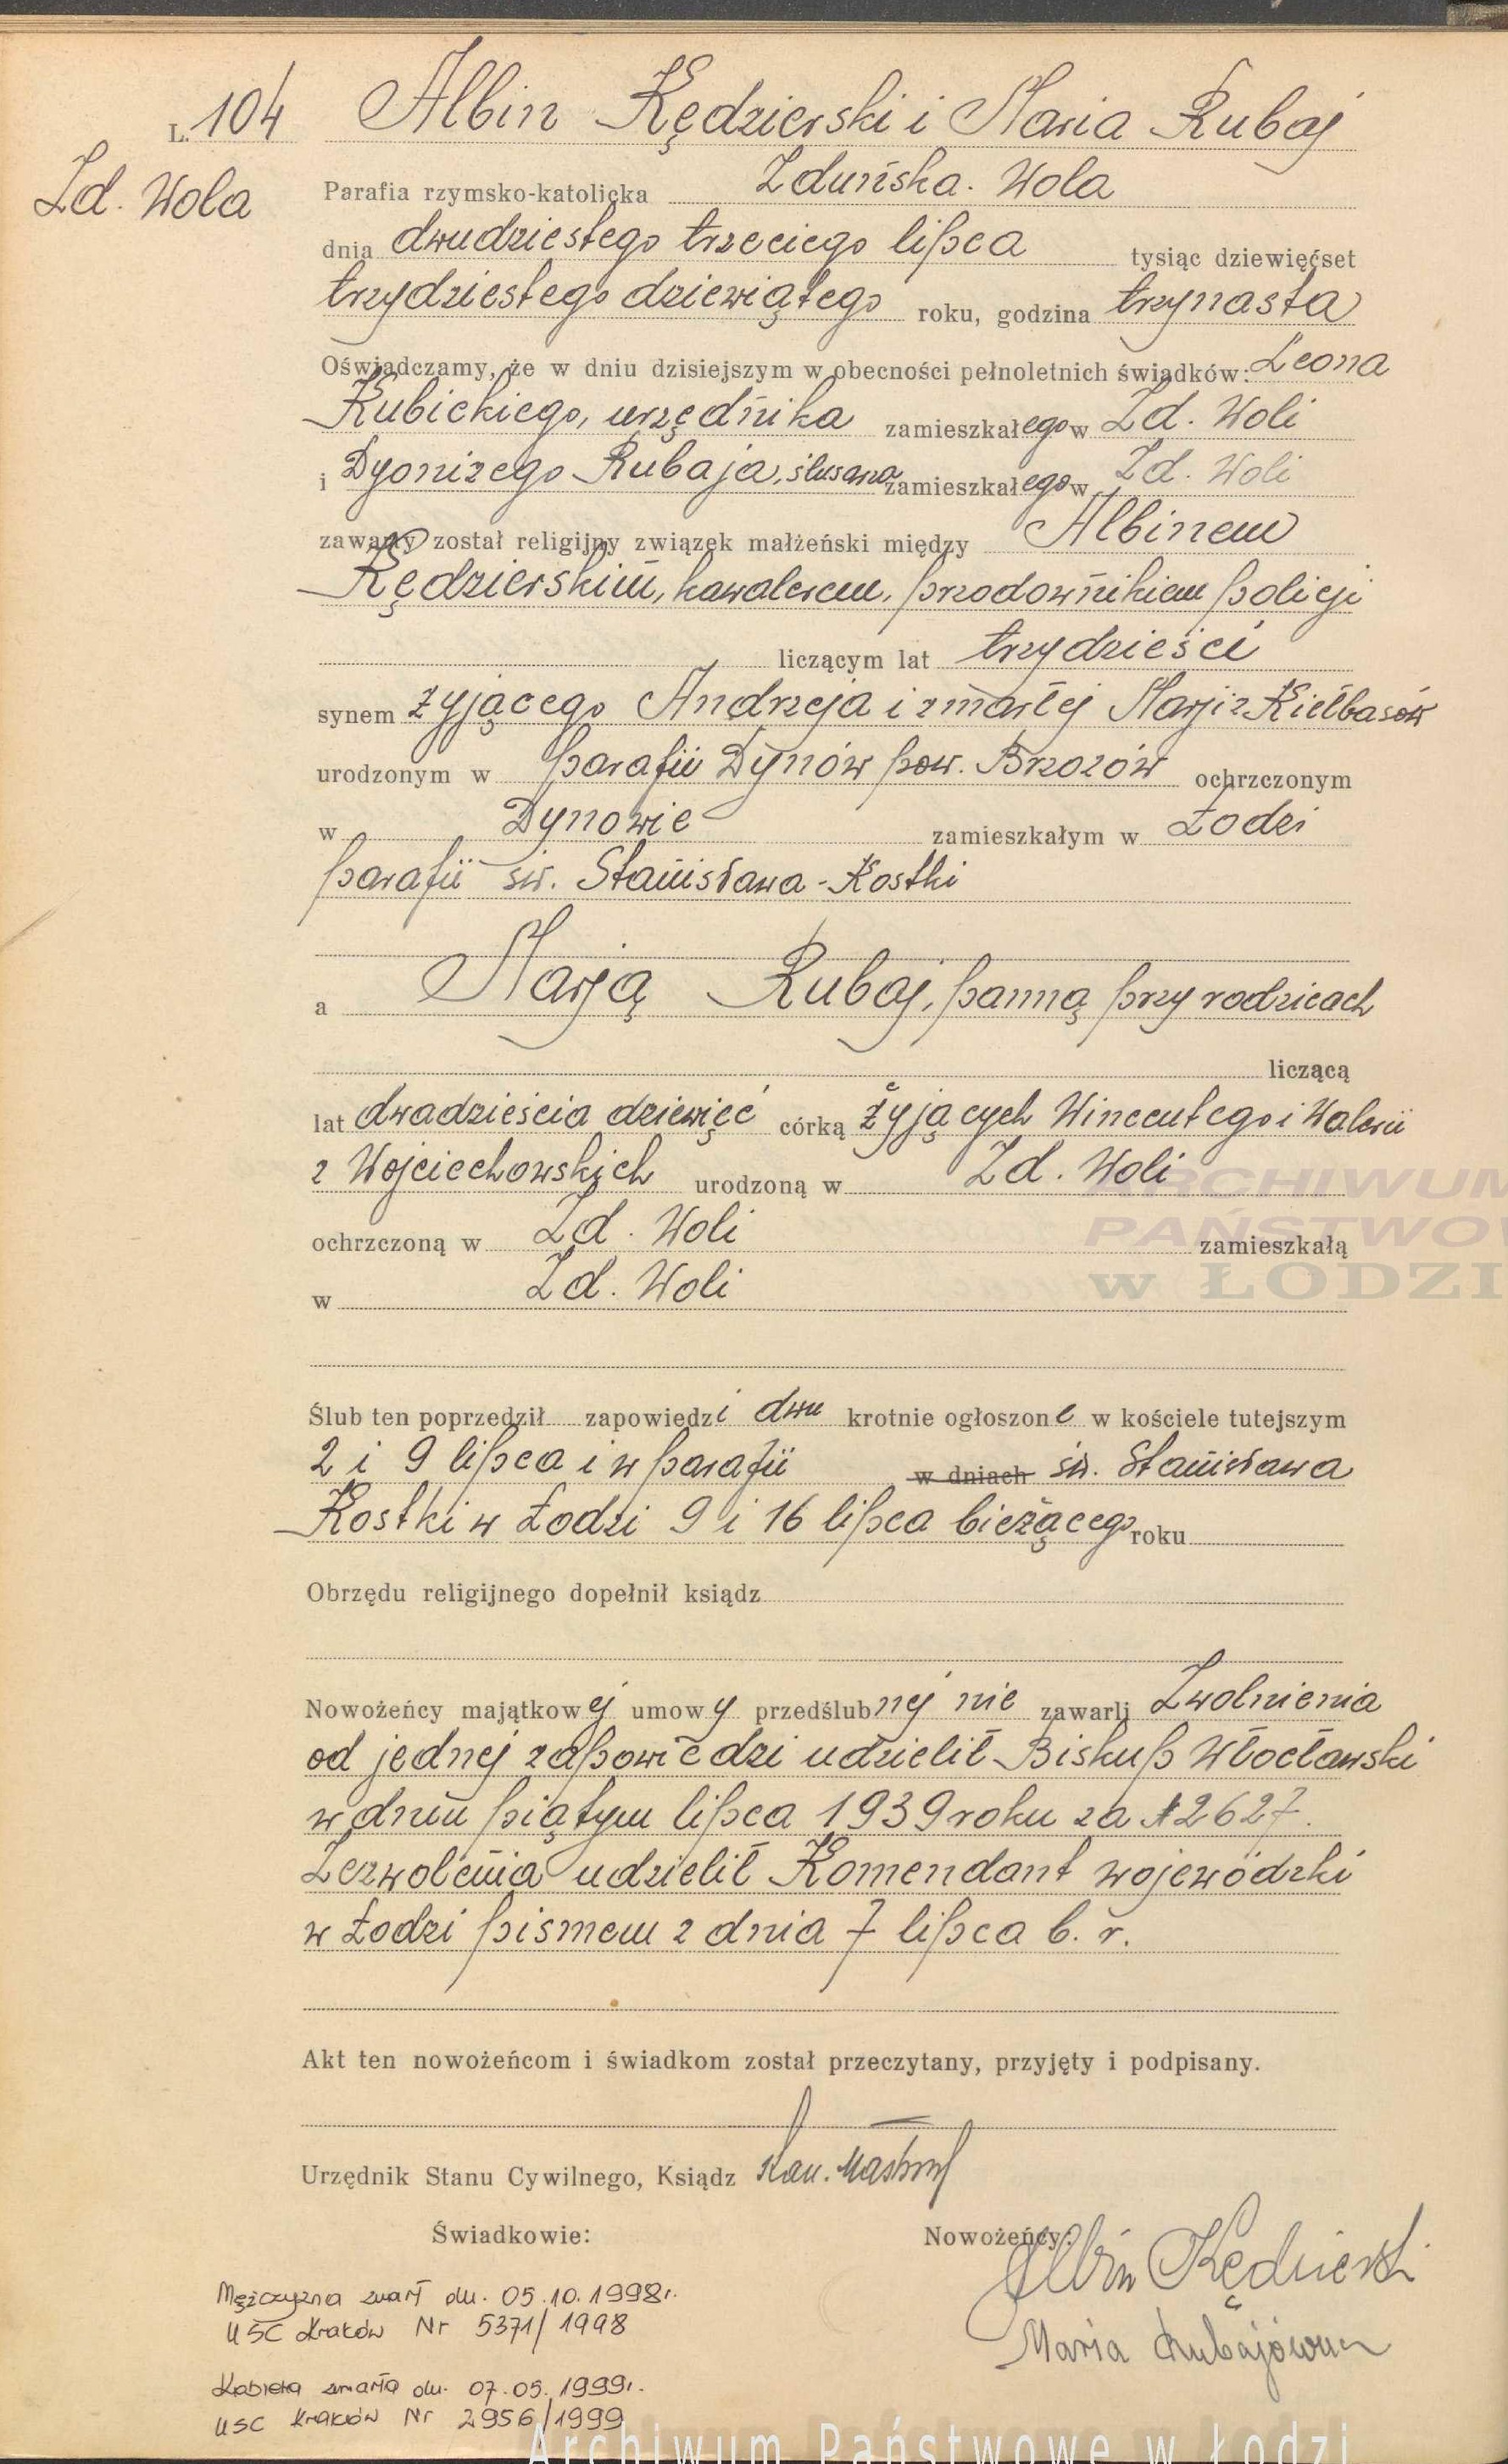 L. 104 Albin Kędzierski i Maria Rubaj
Zd. Wola
Parafia rzymsko-katolicka Zduńska. Wola
dnia dwudziestego trzeciego lipca tysiąc dziewięćset
trzydziestego dziewiątego roku, godzina trzynasta
Oświadczamy, że w dniu dzisiejszym w obecności pełnoletnich świadków: Leona
Kubickiego, urzędnika zamieszkałego w Zd. Woli
i Dyonizego Rubaja, ślusarza zamieszkałego w Zd. Woli
zawarty został religijny związek małżeński między Albinem
Kędzierskim, kawalerem, przodownikiem policji
liczącym lat trzydzieści
synem żyjącego Andrzeja i zmarłej Marji z Kiełbasów
urodzonym w parafii Dynów pow. Brzozów ochrzczonym
w Dynowie zamieszkałym w Łodzi
parafii św. Stanisława-Kostki
a Marją Rubaj, panną przy rodzicach
liczącą
lat dwadzieścia dziewięć córką żyjących Wincentego i Walerii
z Wojciechowskich urodzoną w Zd. Woli
ochrzczoną w Zd. Woli zamieszkałą
w Zd. Woli
ARCHIWUM
PAŃSTWO
w ŁODZI
Ślub ten poprzedził zapowiedzi dwu krotnie ogłoszone w kościele tutejszym
2 i 9 lipca i w parafii w dniach św. Stanisława
Kostki w Łodzi 9 i 16 lipca bieżącego roku
Obrzędu religijnego dopełnił ksiądz
Nowożeńcy majątkowej umowy przedślubnej nie zawarli Zwolnienia
od jednej zapowiedzi udzielił Biskup Włocławski
w dniu piątym lipca 1939 roku za № 2627.
Zezwolenia udzielił Komendant wojewódzki
w Łodzi pismem z dnia 7 lipca b. r.
Akt ten nowożeńcom i świadkom został przeczytany, przyjęty i podpisany.
Urzędnik Stanu Cywilnego, Ksiądz Kan.
Świadkowie: Nowożeńcy:
Albin Kędzierski
Maria Rubajówna
Mężczyzna zmarł dn. 05.10.1998r.
USC Kraków Nr 5371/1998
Kobieta zmarła dn. 07.05.1999r.
USC Kraków Nr 2956/1999
Archiwum Państwowe w Łodzi